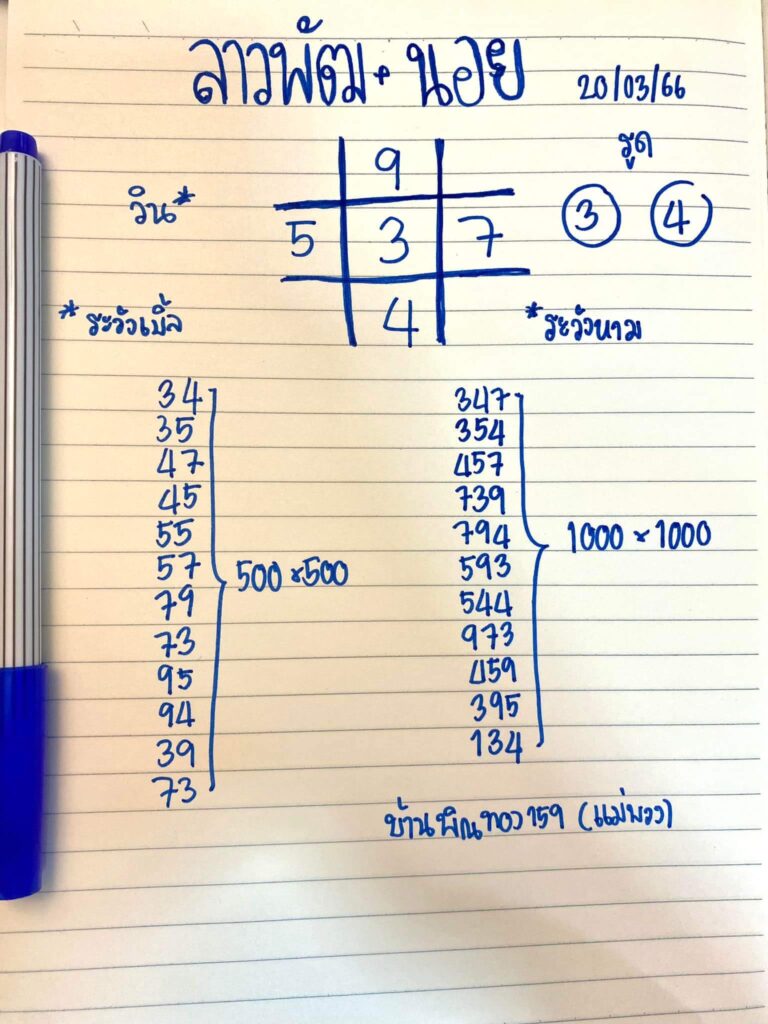 ลาวพัฒ+นอย 20/03/66
รูด
3 4
วิน*
9
5 3 7
4
*ระวังเบิ้ล
*ระวังหาม
34
35
47
45
55
57
79
73
95
94
39
73
500×500
347
354
457
739
794
593
544
973
459
395
134
1000×1000
บ้านพิณทอง159 (แม่พวง)